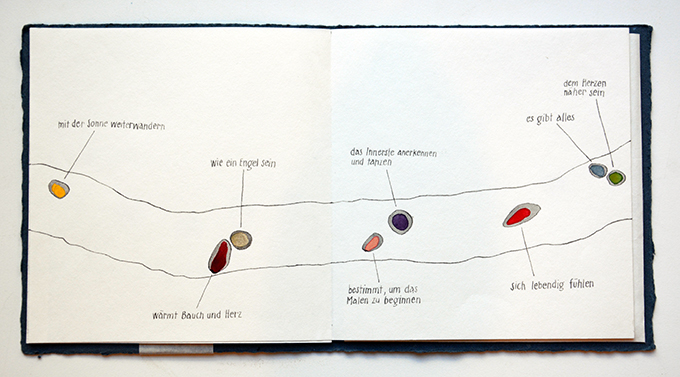 mit der Sonne weiterwandern
wie ein Engel sein
wärmt Bauch und Herz
das Innerste anerkennen
und tanzen
bestimmt, um das
Malen zu beginnen
sich lebendig fühlen
es gibt alles
dem Herzen
näher sein